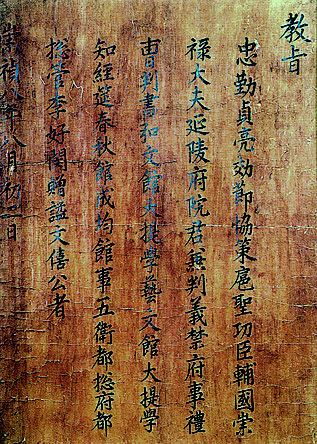 教旨
忠勤貞亮効節協策扈聖功臣輔國崇
祿大夫延陵府院君兼判義禁府事禮
曹判書知文館大提學藝文館大提學
知經筵春秋館成均館事五衛都揔府都
揔管李好閔贈謚文僖公者
崇禎八年八月初一日